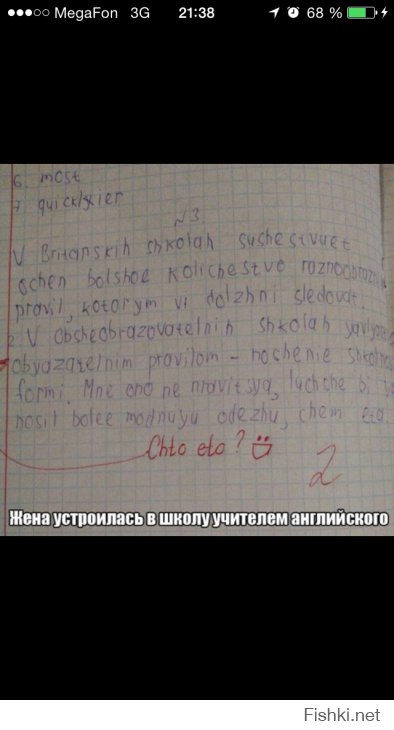 MegaFon 3G 21:38 68 %
6. most
7. quicklyier
N3
V Britanskih shkolah sushestvuet
ochen bolshoe kolichestvo
pravil, kotorym vi dolzhni sledovat.
2. V obscheobrazovatelnih shkolah
obyazatelnim pravilom - noshenie
formi. Mne ono ne nravitsya, luchche bi
nosil bolee modnuyu odezhu, chem eto.
Chto eto?
2
Жена устроилась в школу учителем английского
Fishki.net